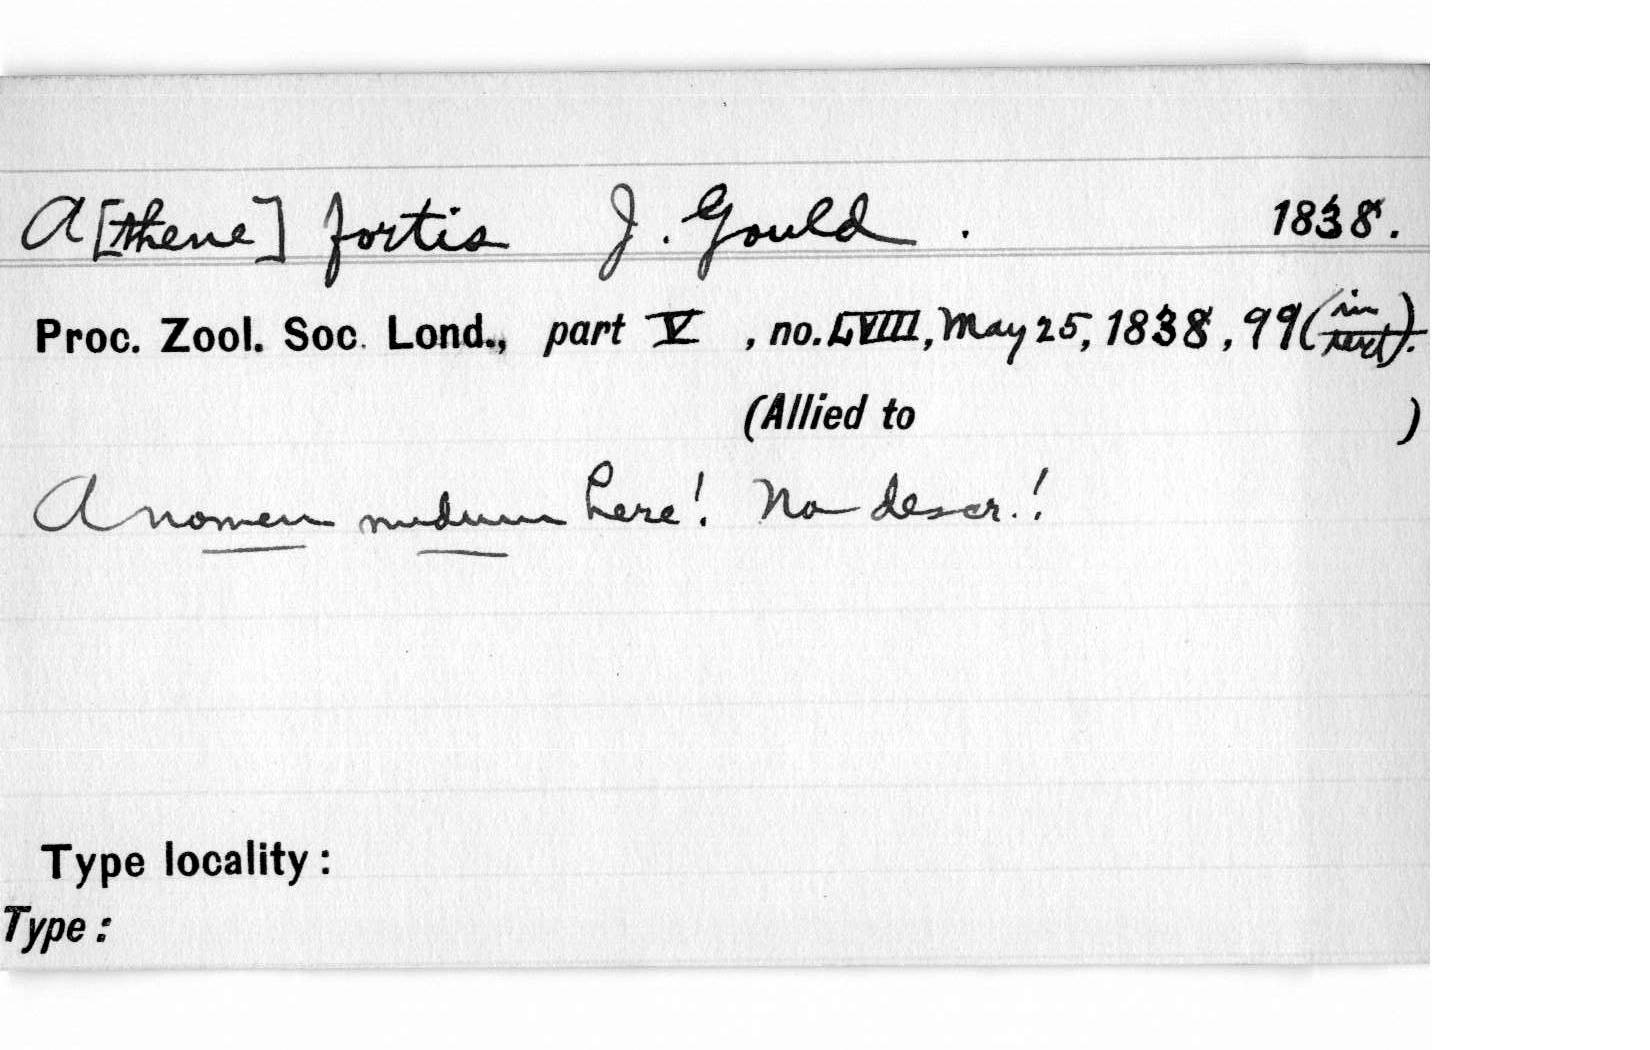 A[thene] fortis J. Gould. 1838.
Proc. Zool. Soc. Lond., part V, no. LVIII, May 25, 1838, 99 (in text).
(Allied to )
A nomen nudum here! No descr.!
Type locality:
Type: